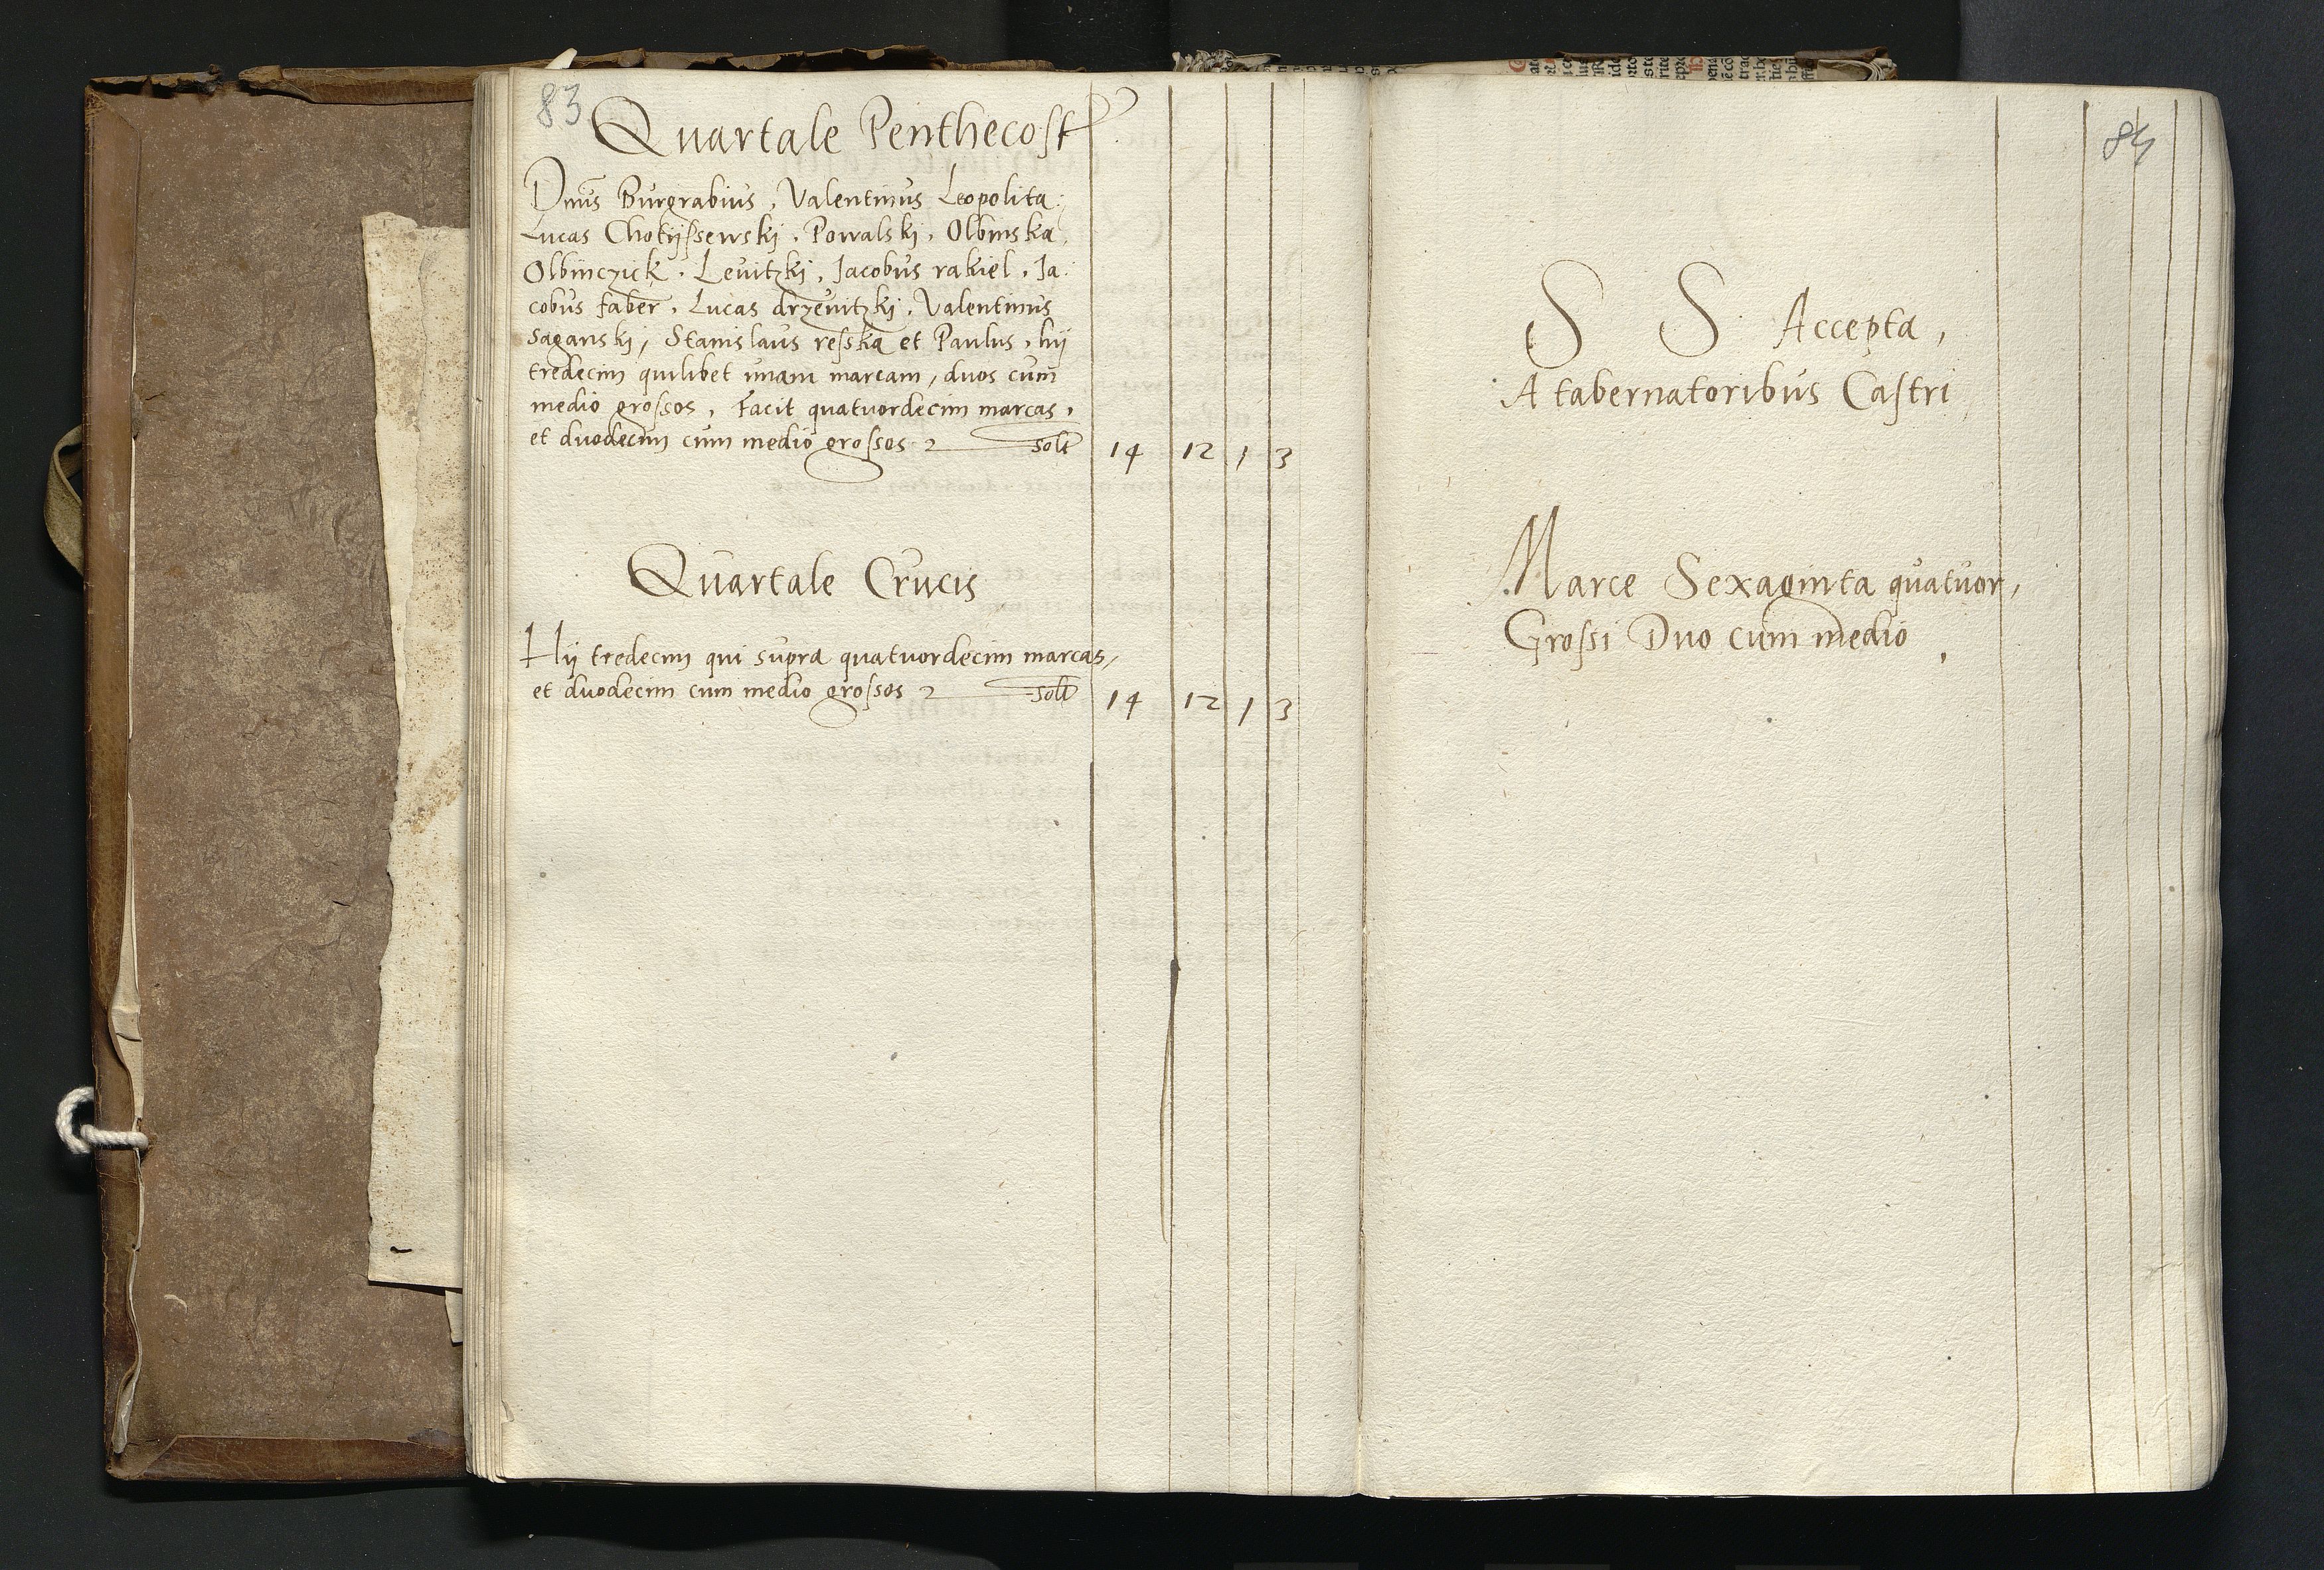 83
Quartale Penthecost
Dnus Burgrabius, Valentinus Leopolita,
Lucas Chotijssewski, Powalski, Olbinska,
Olbinczick, Levitzki, Jacobus rakiel, Ja-
cobus faber, Lucas drzevitzki, Valentinus
Saganski, Stanislaus resska et Paulus, hij
tredecim quilibet unam marcam, duos cum
medio grossos, Facit quatuordecim marcas,
et duodecim cum medio grossos solt 14 12 1 3
Quartale Crucis
Hij tredecim qui supra quatuordecim marcas,
et duodecim cum medio grossos solt 14 12 1 3
84
S S Accepta,
A tabernatoribus Castri
Marce Sexaginta quatuor,
Grossi Duo cum medio,